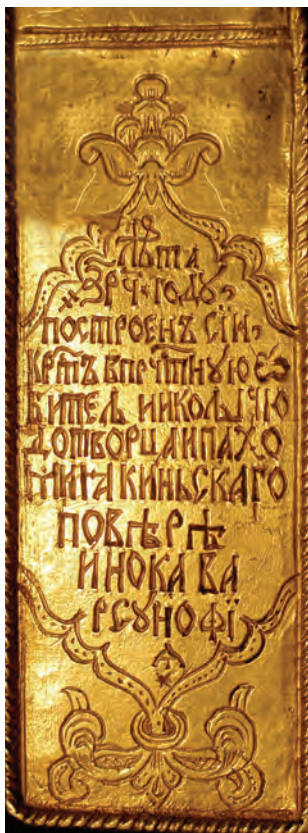 лѣта
҂зрч҃ году
построенъ сїи
крт҃ъ впречт҃ную ѡ
бител николы чю
дотворца и пахо
мия та киньскаго
по вѣрѣ
инока ва
рсунофї
ꙗ